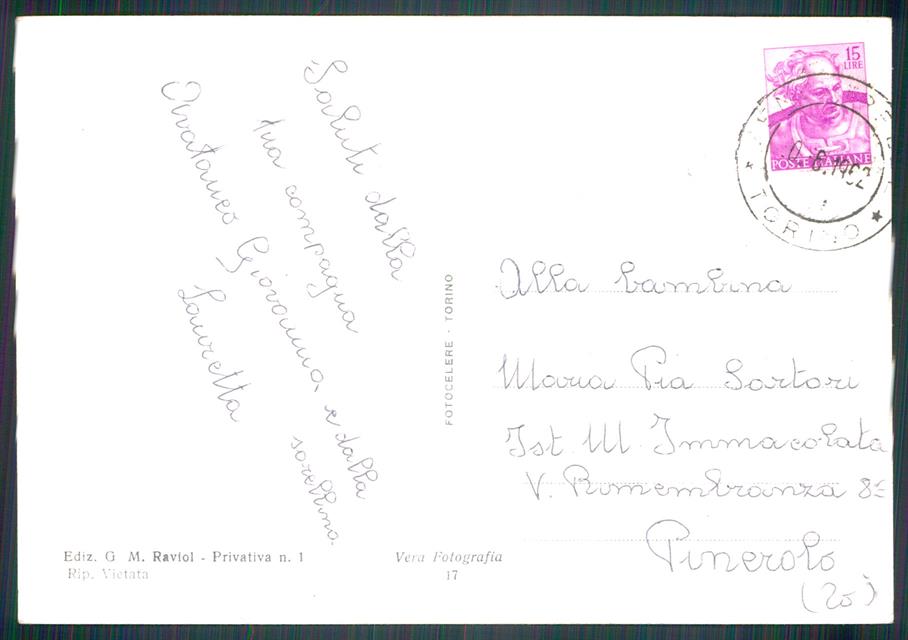 Saluti dalla
tua compagna
Avataneo Giovanna, e dalla
sorellina
Lauretta
15
LIRE
POSTE ITALIANE
TORINO
FOTOCELERE - TORINO
Alla bambina
Maria Pia Sartori
Ist. M. Immacolata
V. Rimembranza
Pinerolo
(To)
Ediz. G M. Raviol - Privativa n. 1
Rip. Vietata
Vera Fotografia
17